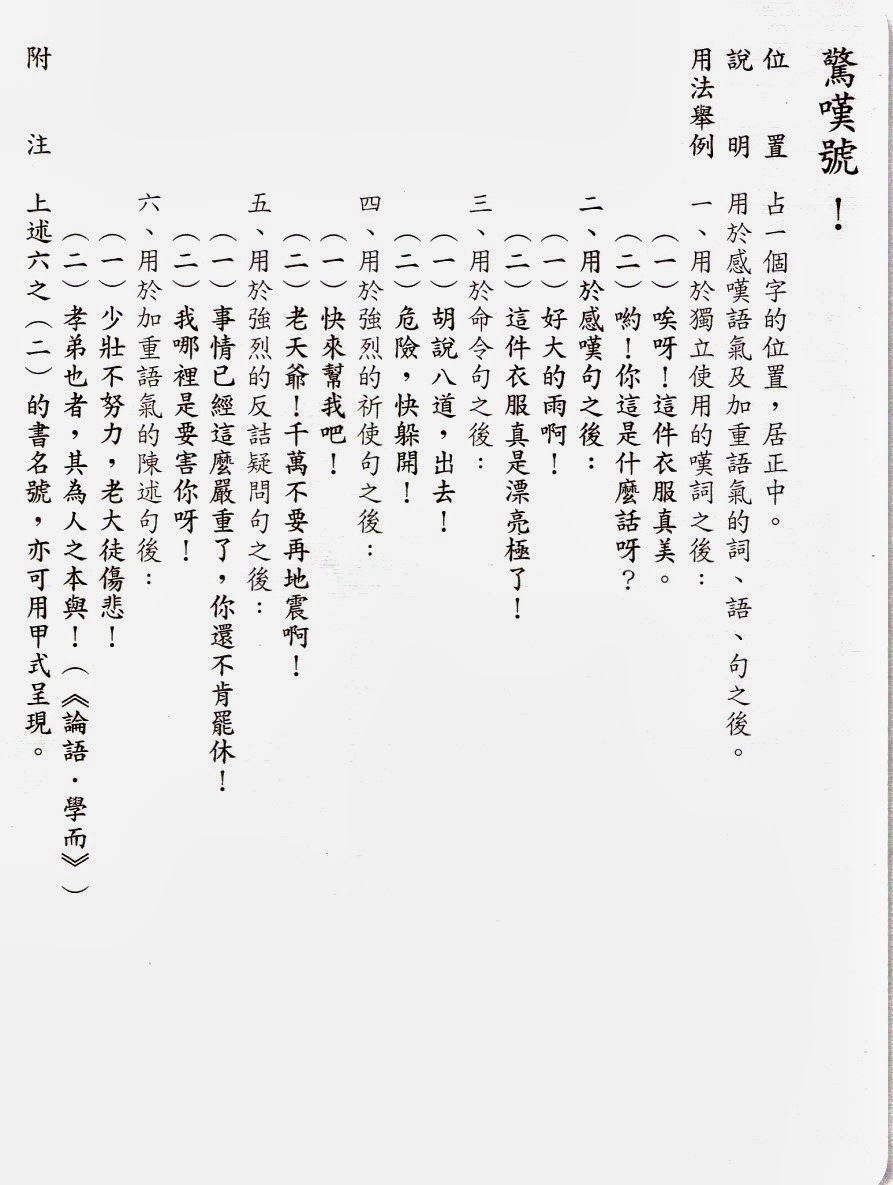 驚嘆號 ！
位置 占一個字的位置，居正中。
說明 用於感嘆語氣及加重語氣的詞、語、句之後。
用法舉例 一、用於獨立使用的嘆詞之後：
（一）唉呀！這件衣服真美。
（二）喲！你這是什麼話呀？
二、用於感嘆句之後：
（一）好大的雨啊！
（二）這件衣服真是漂亮極了！
三、用於命令句之後：
（一）胡說八道，出去！
（二）危險，快躲開！
四、用於強烈的祈使句之後：
（一）快來幫我吧！
（二）老天爺！千萬不要再地震啊！
五、用於強烈的反詰疑問句之後：
（一）事情已經這麼嚴重了，你還不肯罷休！
（二）我哪裡是要害你呀！
六、用於加重語氣的陳述句後：
（一）少壯不努力，老大徒傷悲！
（二）孝弟也者，其為人之本與！（《論語．學而》）
附注 上述六之（二）的書名號，亦可用甲式呈現。